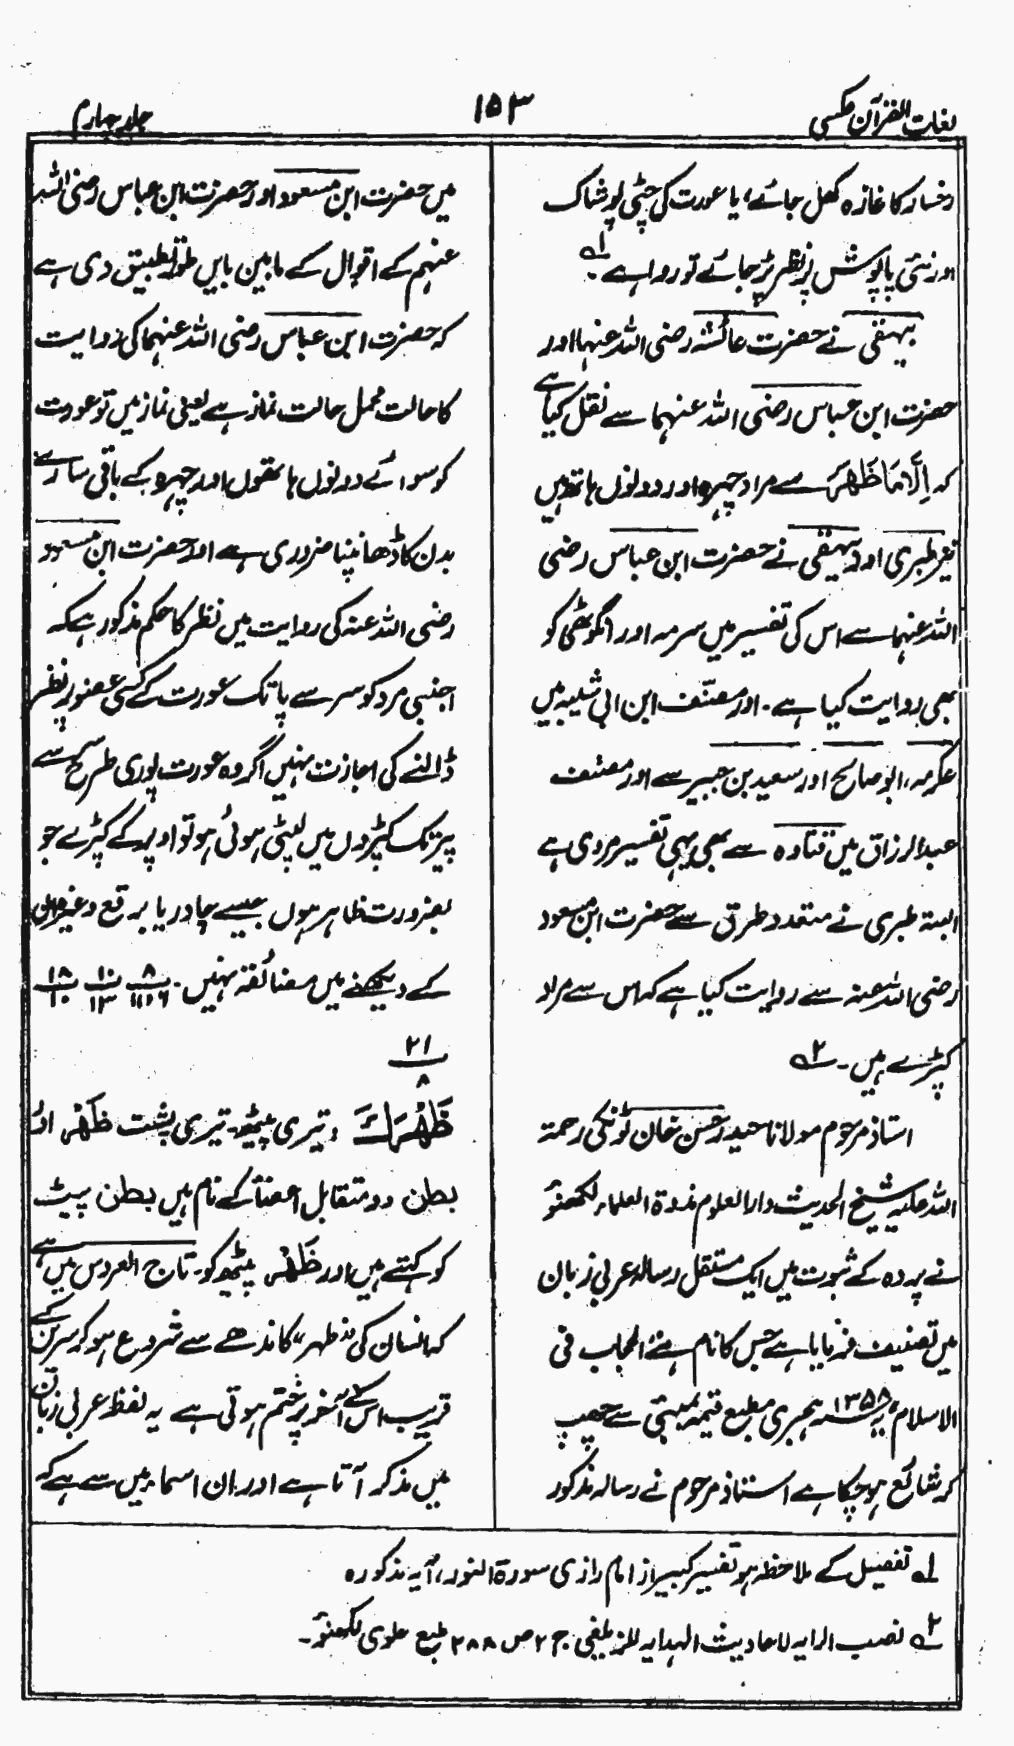 لغات القرآن عکسی
۱۵۳
جلد چہارم
رخسار کا غازہ کھل جائے، یا عورت کی چٹی پوشاک
اور نئی پاپوش پر نظر پڑ جائے تو روا ہے۔ لہ
بیہقی نے حضرت عائشہ رضی اللہ عنہا اور
حضرت ابن عباس رضی اللہ عنہما سے نقل کیا ہے
کہ اِلَّا مَا ظَهَرَ سے مراد چہرہ اور دونوں ہاتھ ہیں
نیز طبری اور بیہقی نے حضرت ابن عباس رضی
اللہ عنہما سے اس کی تفسیر میں سرمہ اور انگوٹھی کو
بھی روایت کیا ہے۔ اور مصنّف ابن ابی شیبہ میں
عکرمہ، ابو صالح اور سعید بن جبیر سے اور مصنف
عبد الرزاق میں قتادہ سے بھی یہی تفسیر مروی ہے
البتہ طبری نے متعدد طرق سے حضرت ابن مسعود
رضی اللہ عنہ سے روایت کیا ہے کہ اس سے مراد
کپڑے ہیں۔ ۲ہ
استاذ مرحوم مولانا حیدر حسن خان ٹونکی رحمۃ
اللہ علیہ شیخ الحدیث دار العلوم ندوۃ العلماء لکھنؤ
نے پردہ کے ثبوت میں ایک مستقل رسالہ عربی زبان
میں تصنیف فرمایا ہے جس کا نام ہے الحجاب فی
الاسلام، یہ ۱۳۵۸ ہجری مطبع قیمہ بمبئی سے چھپ
کر شائع ہو چکا ہے استاذ مرحوم نے رسالہ مذکور
میں حضرت ابن مسعود اور حضرت ابن عباس رضی اللہ
عنہم کے اقوال کے مابین بایں طور تطبیق دی ہے
کہ حضرت ابن عباس رضی اللہ عنہما کی روایت
کا حالت محمل حالت نماز ہے یعنی نماز میں تو عورت
کو سوائے دونوں ہاتھوں اور چہرہ کے باقی سارے
بدن کا ڈھانپنا ضروری ہے اور حضرت ابن مسعود
رضی اللہ عنہ کی روایت میں نظر کا حکم مذکور ہے کہ
اجنبی مرد کو سر سے پا تک عورت کے کسی عضو پر نظر
ڈالنے کی اجازت نہیں اگر وہ عورت پوری طرح سے
پیر تک کپڑوں میں لپٹی ہوئی ہو تو اوپر کے کپڑے جو
بضرورت ظاہر ہوں جیسے چادر یا برقع وغیرہ ان
کے دیکھنے میں مضائقہ نہیں۔ ۸/۱۱،۶ ۱۰/۱۳ ۱۸/۱۰
۲۱/۸
ظَهْرَكَ ؛ تیری پیٹھ۔ تیری پشت ظَهْر اور
بطن دو متقابل اعضاء کے نام ہیں بطن پیٹ
کو کہتے ہیں اور ظَهْر پیٹھ کو۔ تاج العروس میں ہے
کہ انسان کی ”ظهر“ کاندھے سے شروع ہو کر سرین کے
قریب اس کے آخر پر ختم ہوتی ہے یہ لفظ عربی زبان
میں مذکر آتا ہے اور ان اسماء میں سے ہے کہ
لہ تفصیل کے ملاحظہ ہو تفسیر کبیر از امام رازی سورۃ النور، آیہ مذکورہ
۲ہ نصب الرایہ لاحادیث الہدایہ للزیلعی ج ۲ ص ۲۸۸ طبع علوی لکھنؤ۔